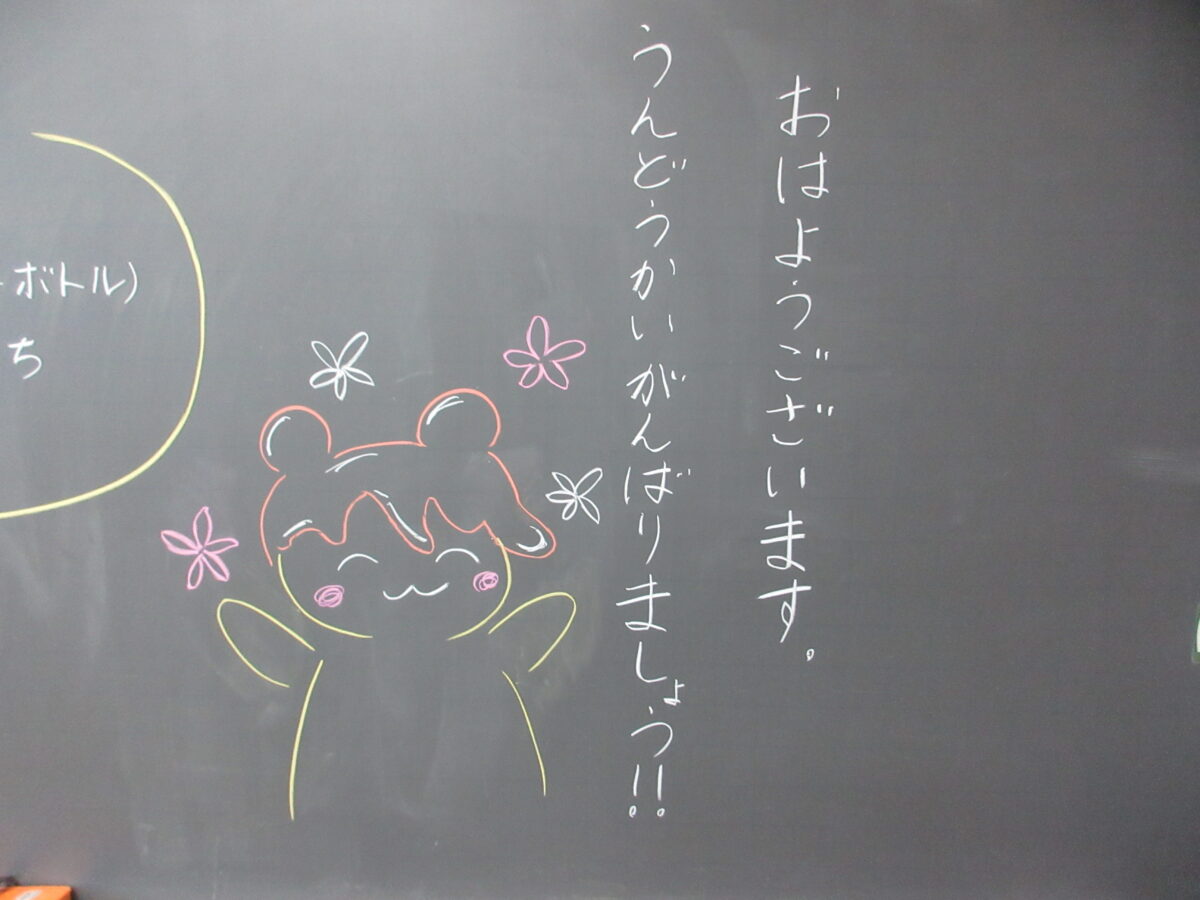 おはようございます。
うんどうかいがんばりましょう!!
ボトル)
ち